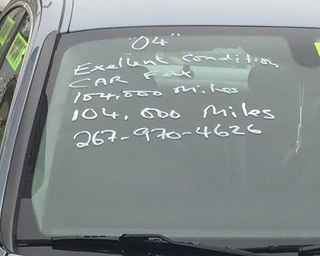 "04"
Exellent Condition
CAR Fax
104,000 Miles
104,000 Miles
267-970-4626